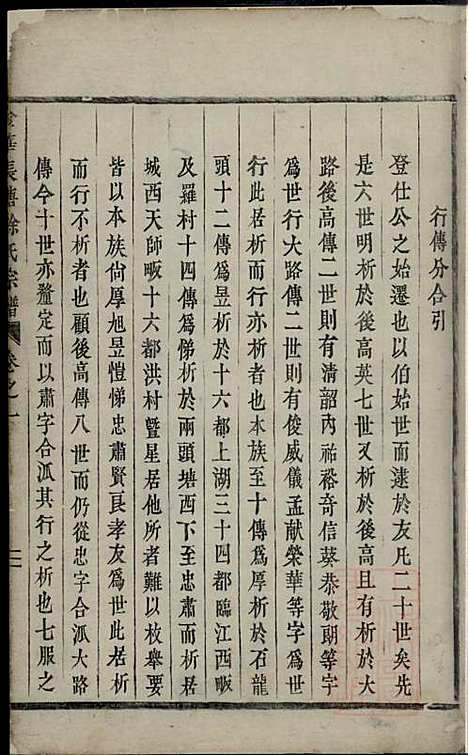 行傳分合引
登仕公之始遷也以伯始世而逮於友凡二十世矣先
是六世明析於後高英七世又析於後高且有析於大
路後高傳二世則有清韶內祐裕奇信葵恭敬朗等字
爲世行大路傳二世則有俊威儀孟獻榮華等字爲世
行此居析而行亦析者也本族至十傳爲厚析於石龍
頭十二傳爲昱析於十六都上湖三十四都臨江西畈
及羅村十四傳爲悌析於兩頭塘西下至忠肅而析於
城西天師畈十六都洪村暨星居他所者難以枚舉要
皆以本族尙厚旭昱愷悌忠肅賢良孝友爲世此居析
而行不析者也顧後高傳八世而仍從忠字合派大路
傳今十世亦釐定而以肅字合派其行之析也七服之
金華長塘徐氏宗譜 卷之一